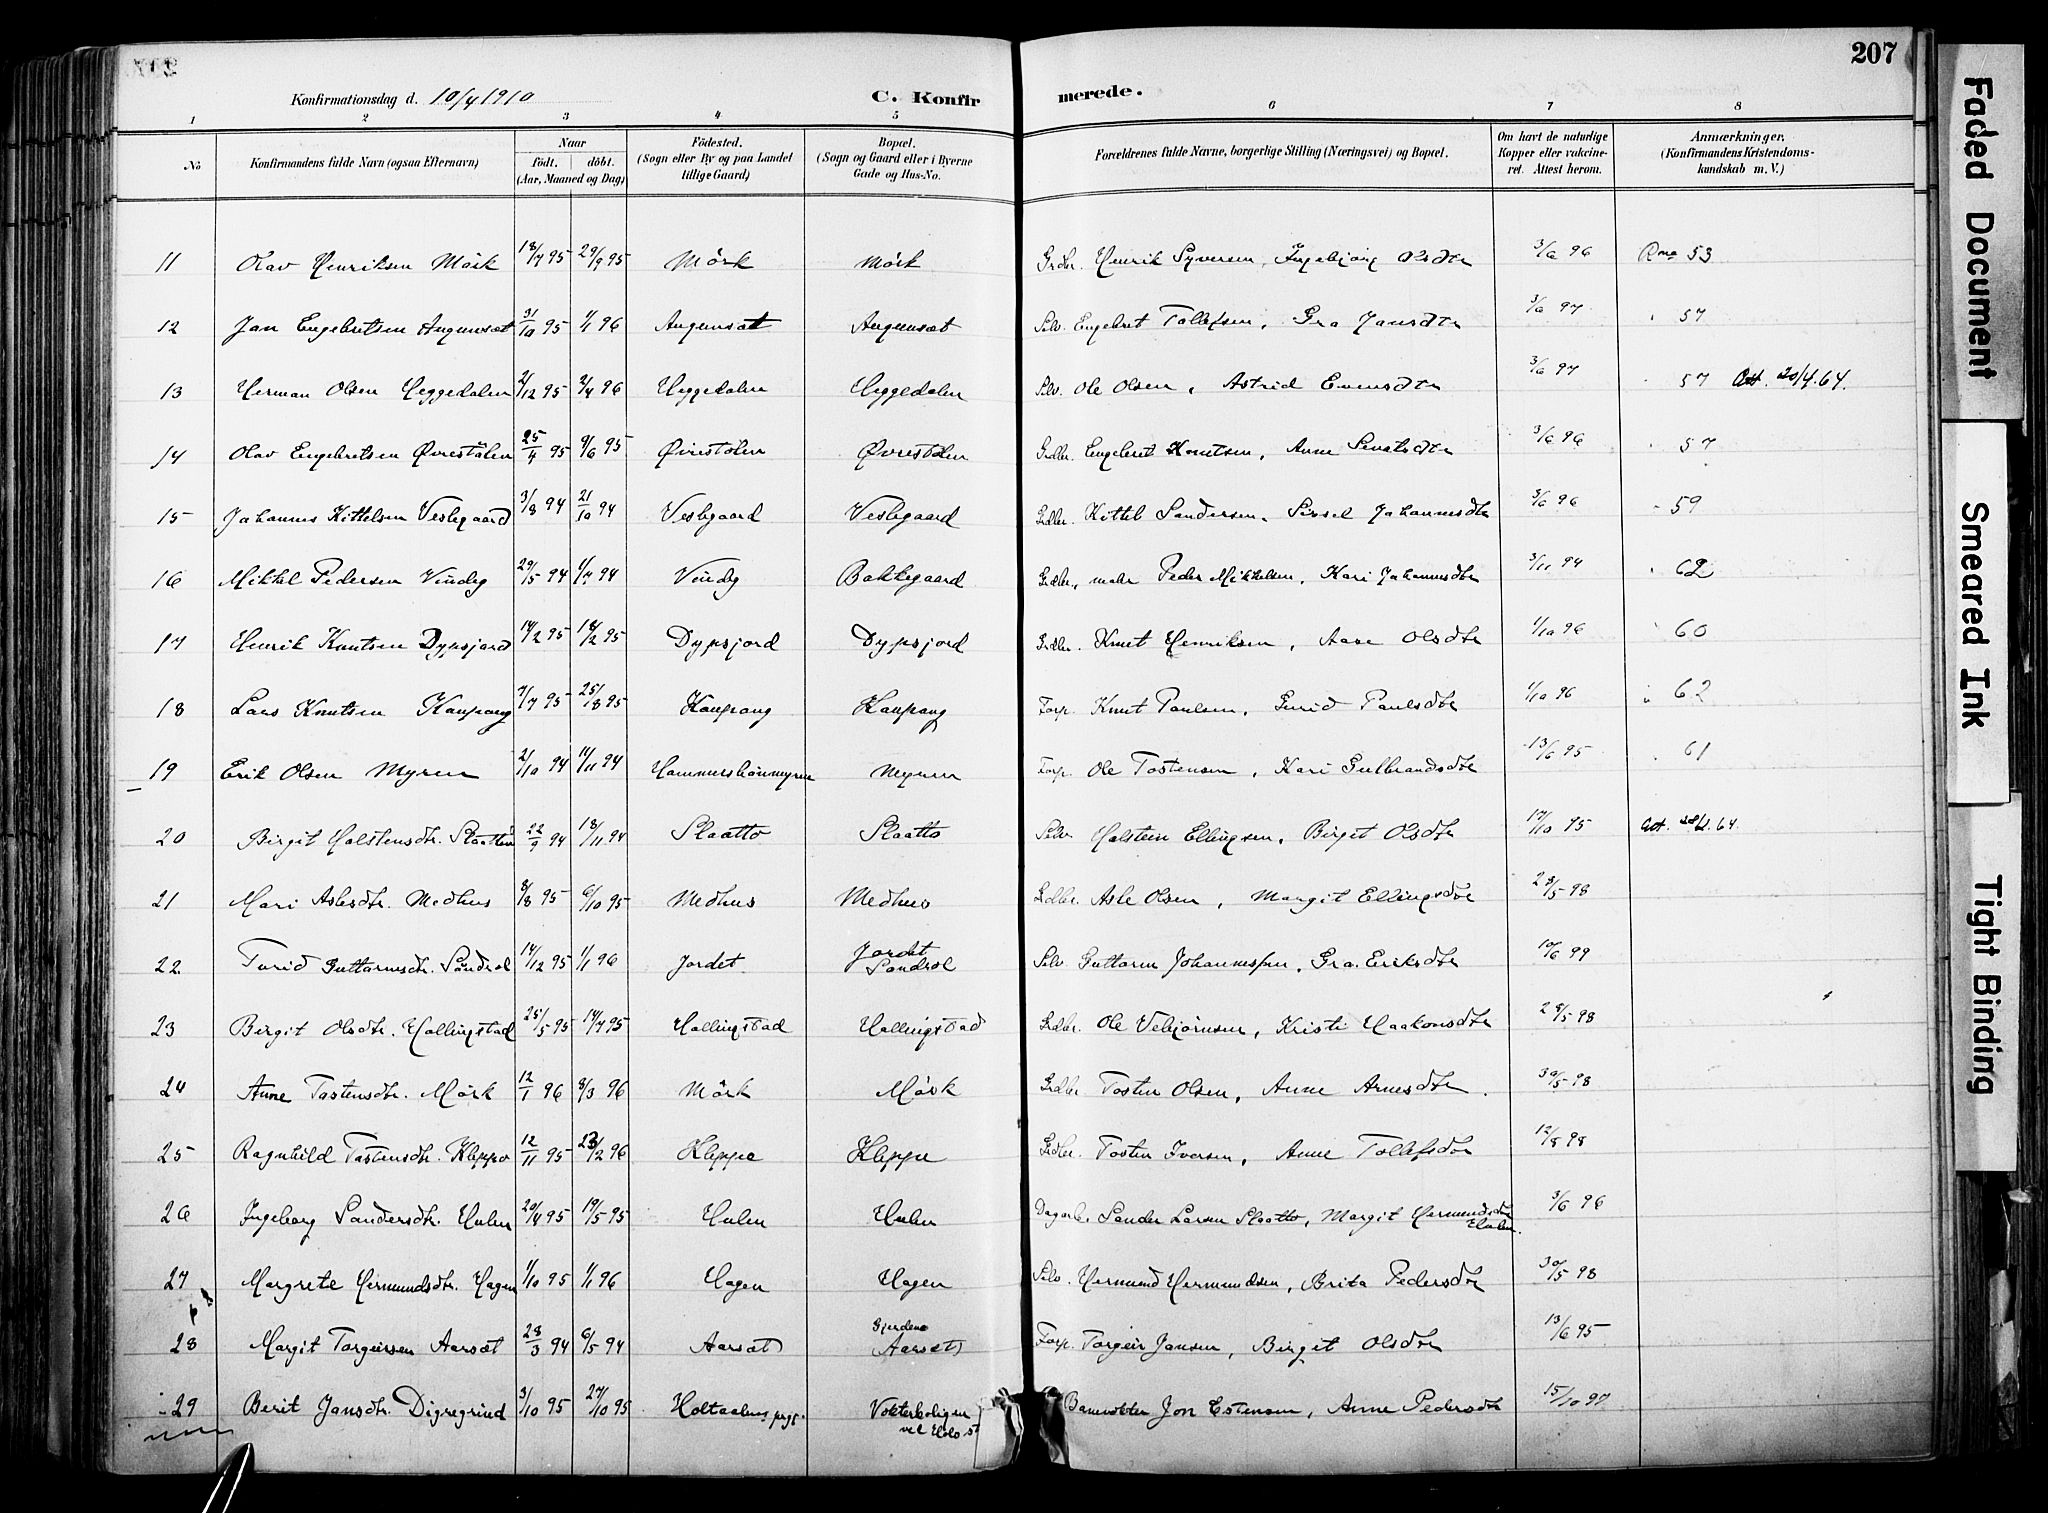 207
Konfirmationsdag d. 10/4 1910 C. Konfirmerede.
1 2 3 4 5 6 7 8
No Konfirmandens fulde Navn (ogsaa Efternavn) Naar födt. döbt. (Aar, Maaned og Dag) Födested. (Sogn eller By og paa Landet tillige Gaard) Bopæl. (Sogn og Gaard eller i Byerne Gade og Hus-No. Forældrenes fulde Navne, borgerlige Stilling (Næringsvei) og Bopæl. Om havt de naturlige Kopper eller vakcineret. Attest herom. Anmærkninger. (Konfirmandens Kristendomskundskab m. V.)
11 Olav Henriksen Mörk 18/7 95 29/9 95 Mörk Mörk Grdbr. Henrik Syversen, Ingebjörg Olsdtr 3/6 96 53
12 Jan Engebretsen Augunsæt 31/10 95 1/1 96 Augunsæt Augunsæt Selv. Engebret Tollefsen, Gra Jansdtr 3/6 97 " 57
13 Herman Olsen Heggedalen 2/12 95 2/4 96 Heggedalen Heggedalen Selv. Ole Olsen, Astrid Evensdtr 3/6 97 " 57 Att. 20/4.64.
14 Olav Engebretsen Øvrestölen 25/4 95 9/6 95 Øvrestölen Øvrestölen Grdbr. Engebret Knutsen, Anne 3/6 96 " 57
15 Johannes Kittelsen Veslegaard 3/8 94 21/10 94 Veslegaard Veslegaard Grdbr. Kittel Sandersen, Sissel Johannesdtr 3/6 96 " 59
16 Mikkel Pedersen Vindeg 29/5 94 1/7 94 Vindeg Bakkegaard Grdbr., maler Peder Mikkelsen, Kari Johannesdtr 3/11 94 " 62
17 Henrik Knutsen Dypsjord 14/2 95 Dypsjord Dypsjord Grdbr. Knut Henriksen, Aase Olsdtr 1/10 96 " 60
18 Lars Knutsen Kaupang 7/7 95 25/8 95 Kaupang Kaupang Forp. Knut Paulsen, Gurid Paulsdtr 1/10 96 " 62
19 Erik Olsen Myren 2/10 94 11/11 94 Hammersbönmyren Myren Forp. Ole Tostensen, Kari Gulbrandsdtr 13/6 95 " 61
20 Birgit Holstensdtr. Slaatten 22/9 94 18/11 94 Slaatto Slaatto Selv. Holstein Ellingsen, Birgit Olsdtr 17/10 95 Att.
21 Mari Aslesdtr. Medhus 8/8 95 6/10 95 Medhus Medhus Grdbr. Asle Olsen, Margit Ellingsdtr 28/5 98
22 Turid Guttormsdtr. Söndrol 14/12 95 1/1 96 Jordet Jordet Sondrol Selv. Guttorm Johannessen, Gra Eriksdtr 10/6 99
23 Birgit Olsdtr. Hallingstad 25/5 95 14/7 95 Hallingstad Hallingstad Grdbr. Ole Vebjörnsen, Kristi Haakonsdtr 28/5 98
24 Anne Tostensdtr. Mörk 12/1 96 8/3 96 Mörk Mörk Grdbr Tosten Olsen, Anne Arnesdtr. 30/5 98
25 Ragnhild Tostensdtr. Kleppe 12/11 95 23/2 96 Kleppe Kleppe Grdbr. Tosten Iversen, Anne Tollefsdtr 12/8 98
26 Ingeborg Sandersdtr. Hulen 20/4 95 19/5 95 Hulen Hulen Dagarb. Sander Larsen Slaatto, Margit Hermundsdtr Hulen. 3/6 96
27 Margrete Hermundsdtr. Hagen 1/10 95 1/1 96 Hagen Hagen Selv. Hermund Hermundsen, Brita Pedersdtr 30/5 98
28 Margit Torgeirsen Aarsæt 28/3 94 6/5 94 Aarsæt Gjerdene Aarsæt Forp. Torgeir Jansen, Birgit Olsdtr 13/6 95
29 Berit Jansdtr. Digregrind 3/10 95 27/10 95 Holtaalens prgj. Vokterboligen ved st Banevokter Jon Estensen, Anne Pedersdtr 15/10 97
Faded Document
Smeared Ink
Tight Binding